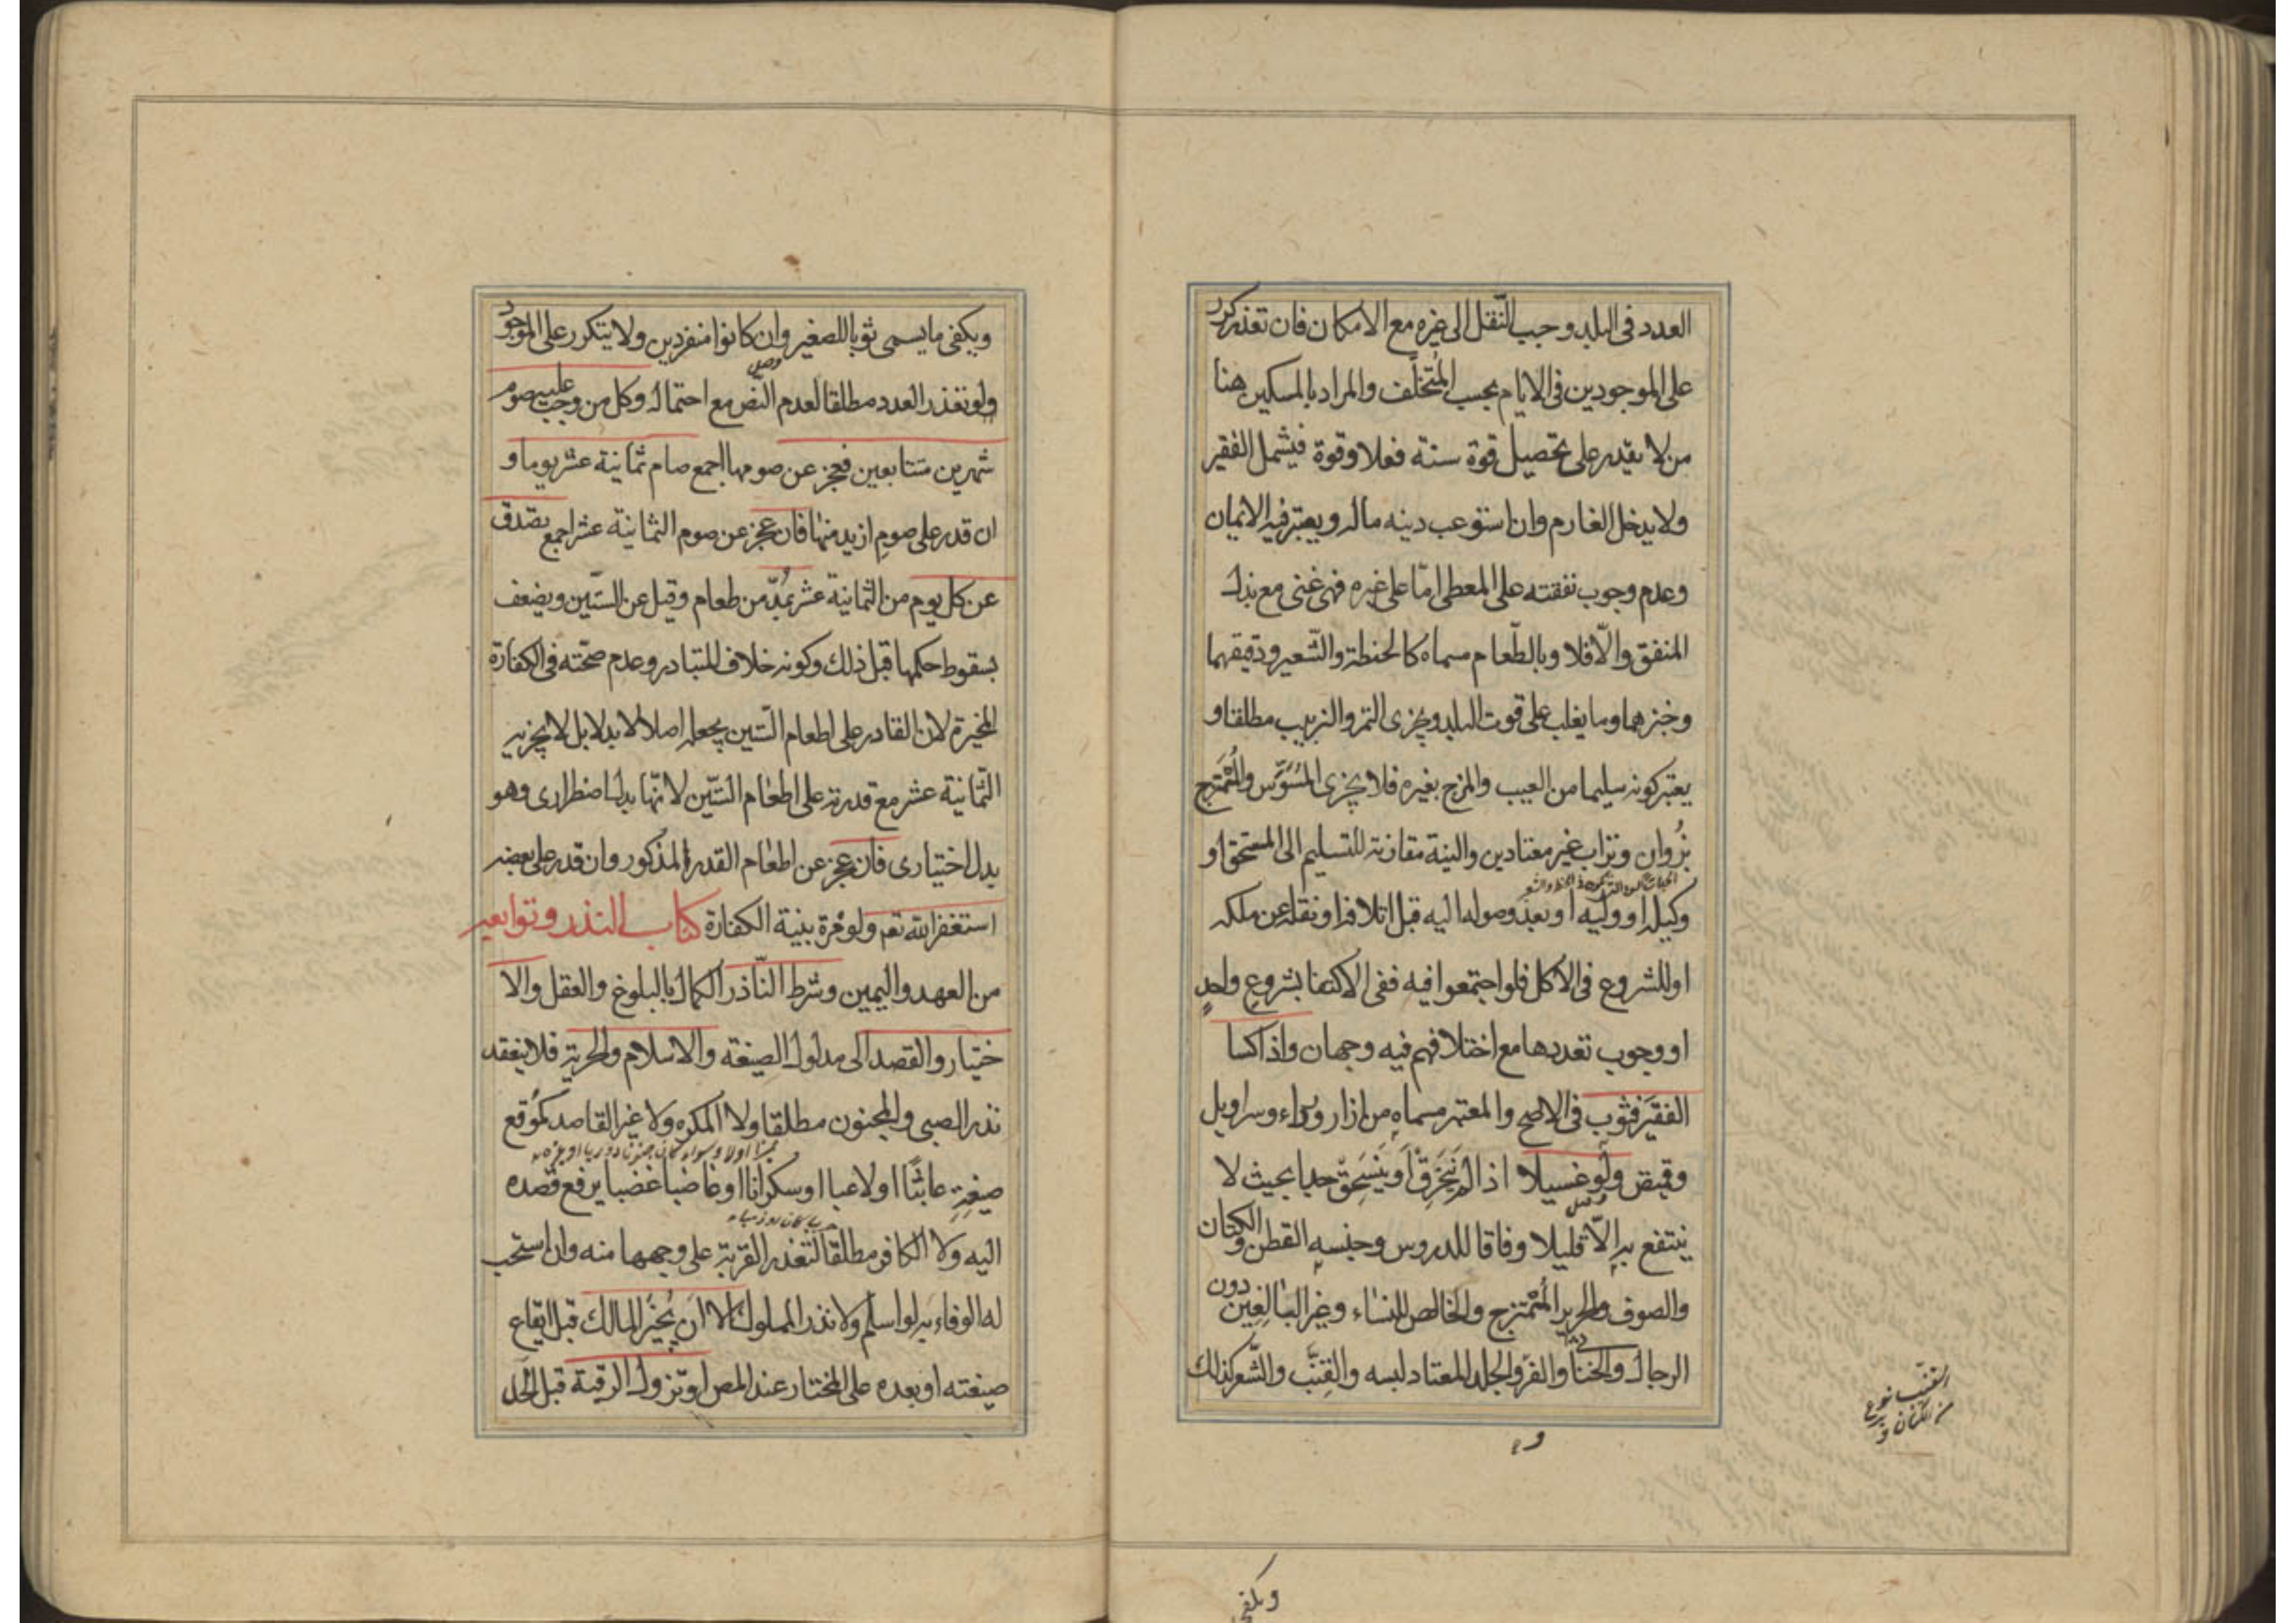 العدد فى البلد وجب النّقل الى غيره مع الامكان فان تعذر كرر
على الموجودين فى الايام بحسب المُتخلّف والمراد بالمسكين هنا
من لا يقدر على تحصيل قوة سنة فعلا وقوة فيشمل الفقير
ولا يدخل الغارم وان استوعب دينه ماله ويعتبر فيه الايمان
وعدم وجوب نفقته على المعطى امّا على غيره فهى غنى مع بذل
المنفق والّا فلا وبالطّعام مسماه كالحنطة والشّعير ودقيقهما
وخبزهما وما يغلب على قوت البلد ويجزى التمر والزبيب مطلقا و
يعتبر كونه سليما من العيب والمزج بغيره فلا يجزى المُسَوَّس والمُمْتَزج
بزُوان وتراب غير معتادين والنية مقارنة للتسليم الى المستحق او
وكيله او وليه او بعد وصوله اليه قبل اتلافه او نقله عن ملكه
او للشروع فى الاكل فلو اجتمعوا فيه ففى الاكتفا بشروعِ واحدٍ
او وجوب تعددها مع اختلافهم فيه وجهان واذا كسا
الفقيَر فثوب فى الاصح والمعتبر مسماه من ازار ورداء وسراويل
وقميص ولو غسيلا اذا لم يَنْخَرِقْ اَو يَنْسَحِقْ جدا بحيث لا
ينتفع به الّا قليلا وفاقا للدروس وجنسه القطن والكتان
والصوف والحرير المُمْتزج والخالص للنساء وغير البالغِين دون
الرجال والخناثى والفرو الجلد المعتاد لبسه والقِنَّب والشَّعر كذلك
القنب نوع
من الكتان
ويكفى
ويكفى ما يسمى ثوبا للصغير وان كانوا منفردين ولا يتكرر على الموجود
ولو تعذر العدد مطلقا لعدم النص مع احتماله وكل من وجب عليه صوم
شهرين متتابعين فعجز عن صومها اجمع صام ثمانية عشر يوما و
ان قدر على صومِ ازيد منها فان عجز عن صوم الثمانية عشر اجمع تصدق
عن كل يوم من الثمانية عشر بمُدّ من طعام وقيل عن السّتين ويضعف
بسقوط حكمها قبل ذلك وكونه خلاف المتبادر وعدم صحّته فى الكفارة
المخيرة لان القادر على اطعام السّتين يجعله اصلا لا بدلا بل لا يجزيه
الثّمانية عشر مع قدرته على اطعام السّتين لانّها بدل اضطرارى وهو
بدل اختيارى فان عجز عن اطعام القدر المذكور وان قدر على بعضه
استغفر الله تعم ولو مرة بنية الكفارة كتاب النذر وتوابعه
من العهد واليمين وشرط النّاذر الكمال بالبلوغ والعقل والا
ختيار والقصد الى مدلول الصيغة والاسلام والحرية فلا ينعقد
نذر الصبى والمجنون مطلقا ولا المكره ولا غير القاصد كمُوقع
صيغتِهِ عابثًا او لاعبا او سكرانا او غاضبا غضبا يرفع قصده
اليه ولا الكافر مطلقا لتعذر القربة على وجهها منه وان استحب
له الوفاء به لو اسلم ولا نذر المملوك الا ان يُجيز المالك قبل ايقاع
صيغته او بعده على المختار عند المص او تزول الرقبة قبل الحَل